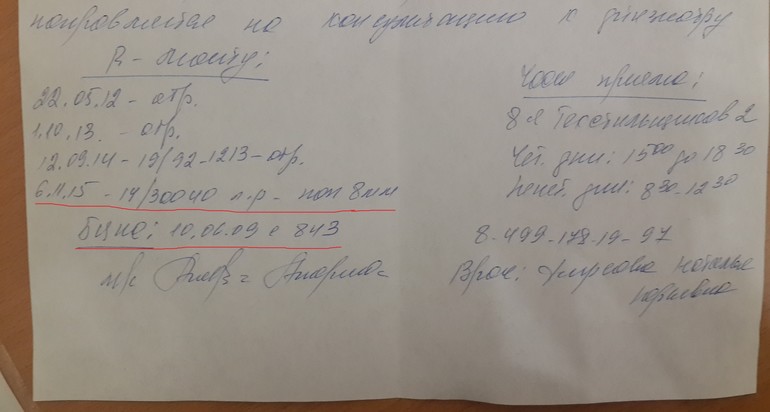 направляется на консультацию к фтизиатру
R-манту:
22.05.12 - отр.
1.10.13. - отр.
12.09.14 - 19/92-1213 - отр.
6.11.15 - 14/30040 л.р - пап 8мм
БЦЖ: 10.06.09 с 843
м/с
Часы приема:
8я Текстильщиков 2
Чет. дни: 15 00 до 18 30
Нечет. дни: 8 30 - 12 30
8-499-178-19-97
Врач: Наталья